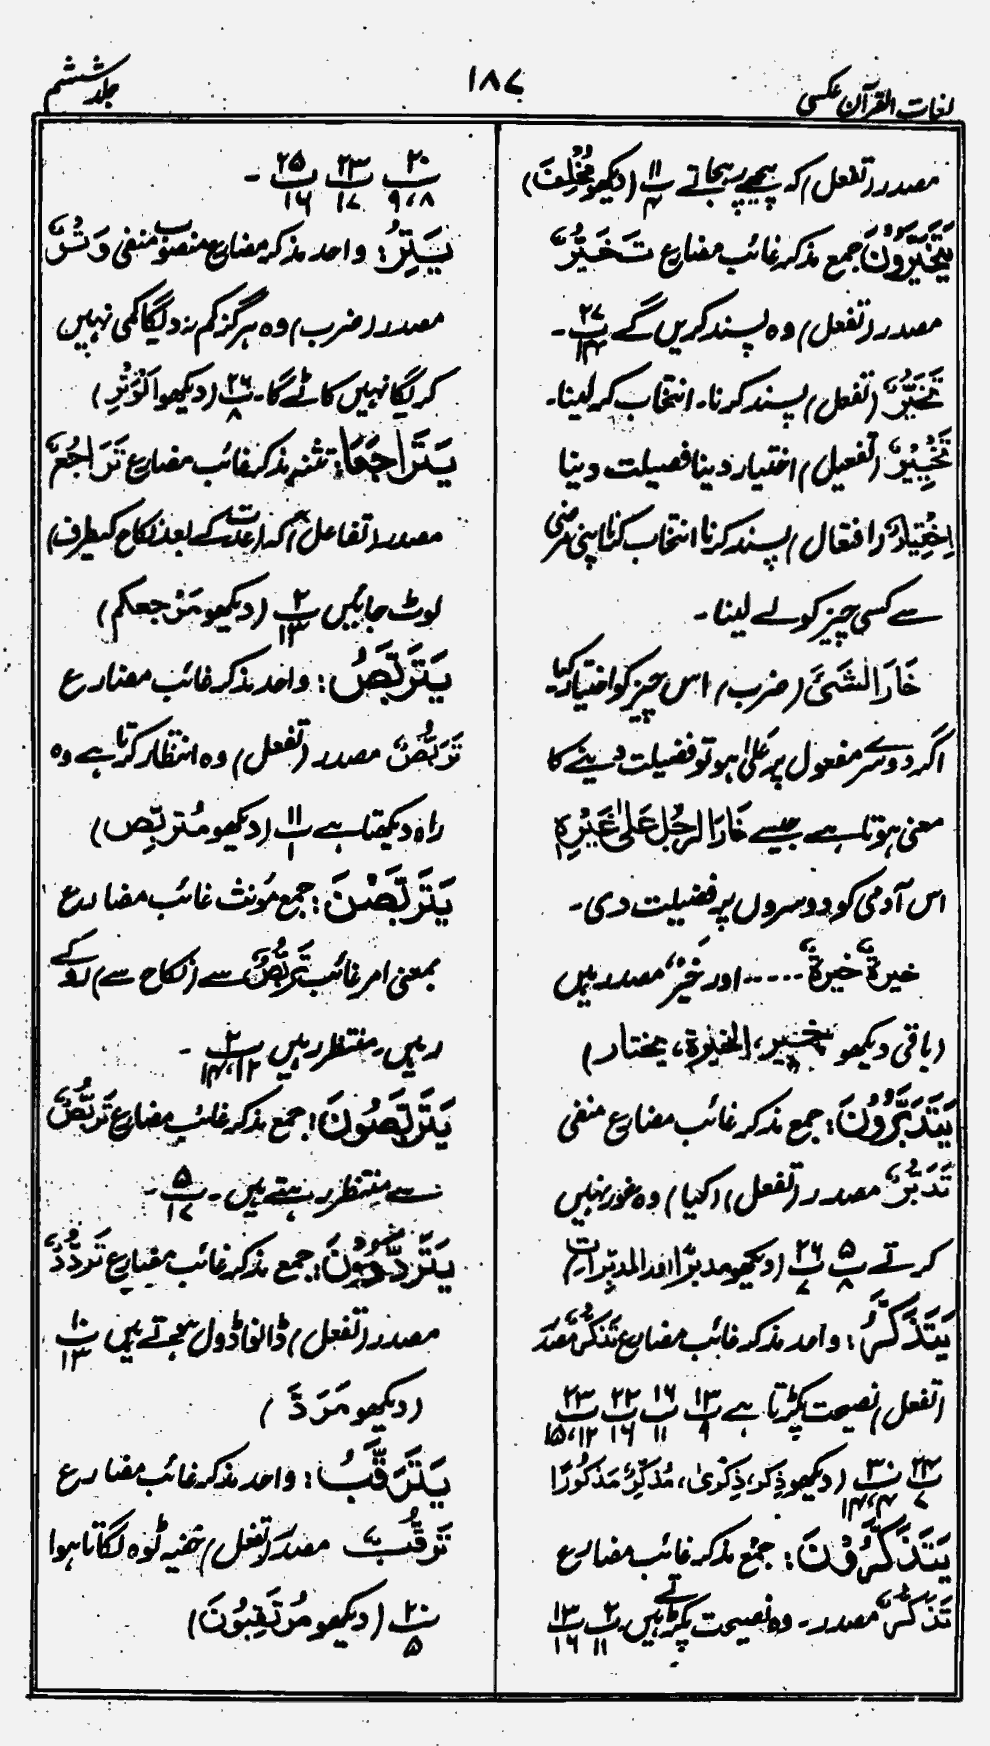 لغات القرآن عکسی
۱۸۷
جلد ششم
مصدر (تفعل) کہ پیچھے رہ جاتے پ۱۱/۴ (دیکھو مُخْلِفَ)
یَتَخَیَّرُوْنَ جمع مذکر غائب مضارع تَخَیُّرٌ
مصدر (تفعل) وہ پسند کریں گے پ۲۷/۱۴ ۔
تَخَیُّرٌ (تفعل) پسند کرنا۔ انتخاب کر لینا۔
تَخْیِیْرٌ (تفعیل) اختیار دینا فضیلت دینا
اِخْتِیَارٌ (افتعال) پسند کرنا انتخاب کرنا اپنی مرضی
سے کسی چیز کو لے لینا۔
خَارَ الشَّیَٔ (ضرب) اس چیز کو اختیار کیا۔
اگر دوسرے مفعول پر عَلیٰ ہو تو فضیلت دینے کا
معنی ہوتا ہے جیسے خَارَ الرَّجُلَ عَلیٰ غَیْرِہٖ
اس آدمی کو دوسروں پر فضیلت دی۔
خیرۃٌ خیرۃٌ ..... اور خَیْرٌ مصدر ہیں
(باقی دیکھو بخیر، الخیرۃ، یختار)
یَتَدَبَّرُوْنَ: جمع مذکر غائب مضارع منفی
تَدَبُّرٌ مصدر (تفعل) (کیا) وہ غور نہیں
کرتے پ۵/۸ پ۲۶/۷ (دیکھو مدبرًا اور المدبرات)
یَتَذَکَّرُ: واحد مذکر غائب مضارع تَذَکُّرٌ مصدر
(تفعل) نصیحت پکڑتا ہے پ۱۳/۹ پ۱۶/۱۱ پ۲۲/۱۶ پ۲۳/۱۲،۱۵
پ۲۴/۷ پ۳۰/۴،۱۴ (دیکھو ذِکر، ذِکْرٰی، مُذَکِّرٌ مَذْکُوْرًا)
یَتَذَکَّرُوْنَ: جمع مذکر غائب مضارع
تَذَکُّرٌ مصدر۔ وہ نصیحت پکڑتے ہیں پ۲/۱۱ پ۱۳/۱۶
پ۲۰/۸،۹ پ۲۳/۱۷ پ۲۵/۱۶ ۔
یَتِرُ: واحد مذکر مضارع منصوب منفی وَتْرٌ
مصدر (ضرب) وہ ہرگز کم نہ دے گا کمی نہیں
کرے گا نہیں کاٹے گا۔ پ۲۶/۸ (دیکھو اَلْوَتْرِ)
یَتَرَاجَعَا: تثنیہ مذکر غائب مضارع تَرَاجُعٌ
مصدر (تفاعل) کہ (عدت کے بعد نکاح کیطرف)
لوٹ جائیں پ۲/۱۳ (دیکھو مَرْجعکم)
یَتَرَبَّصُ: واحد مذکر غائب مضارع
تَرَبُّصٌ مصدر (تفعل) وہ انتظار کرتا ہے وہ
راہ دیکھتا ہے پ۱۱/۱ (دیکھو مُتَربِّص)
یَتَرَبَّصْنَ: جمع مؤنث غائب مضارع
بمعنی امر غائب تَرَبُّصٌ سے (نکاح سے) رُکے
رہیں۔ منتظر رہیں پ۲/۱۲،۱۴ ۔
یَتَرَبَّصُوْنَ: جمع مذکر غائب مضارع تَرَبُّصٌ
سے منتظر رہتے ہیں۔ پ۵/۱۷ ۔
یَتَرَدَّدُوْنَ: جمع مذکر غائب مضارع تَرَدُّدٌ
مصدر (تفعل) ڈانواڈول ہوتے ہیں پ۱۰/۱۳
(دیکھو مَرَدَّ)
یَتَرَقَّبُ: واحد مذکر غائب مضارع
تَرَقُّبٌ مصدر (تفعل) خفیہ ٹوہ لگاتا ہوا
پ۲۰/۵ (دیکھو مُرْتَقِبُوْنَ)